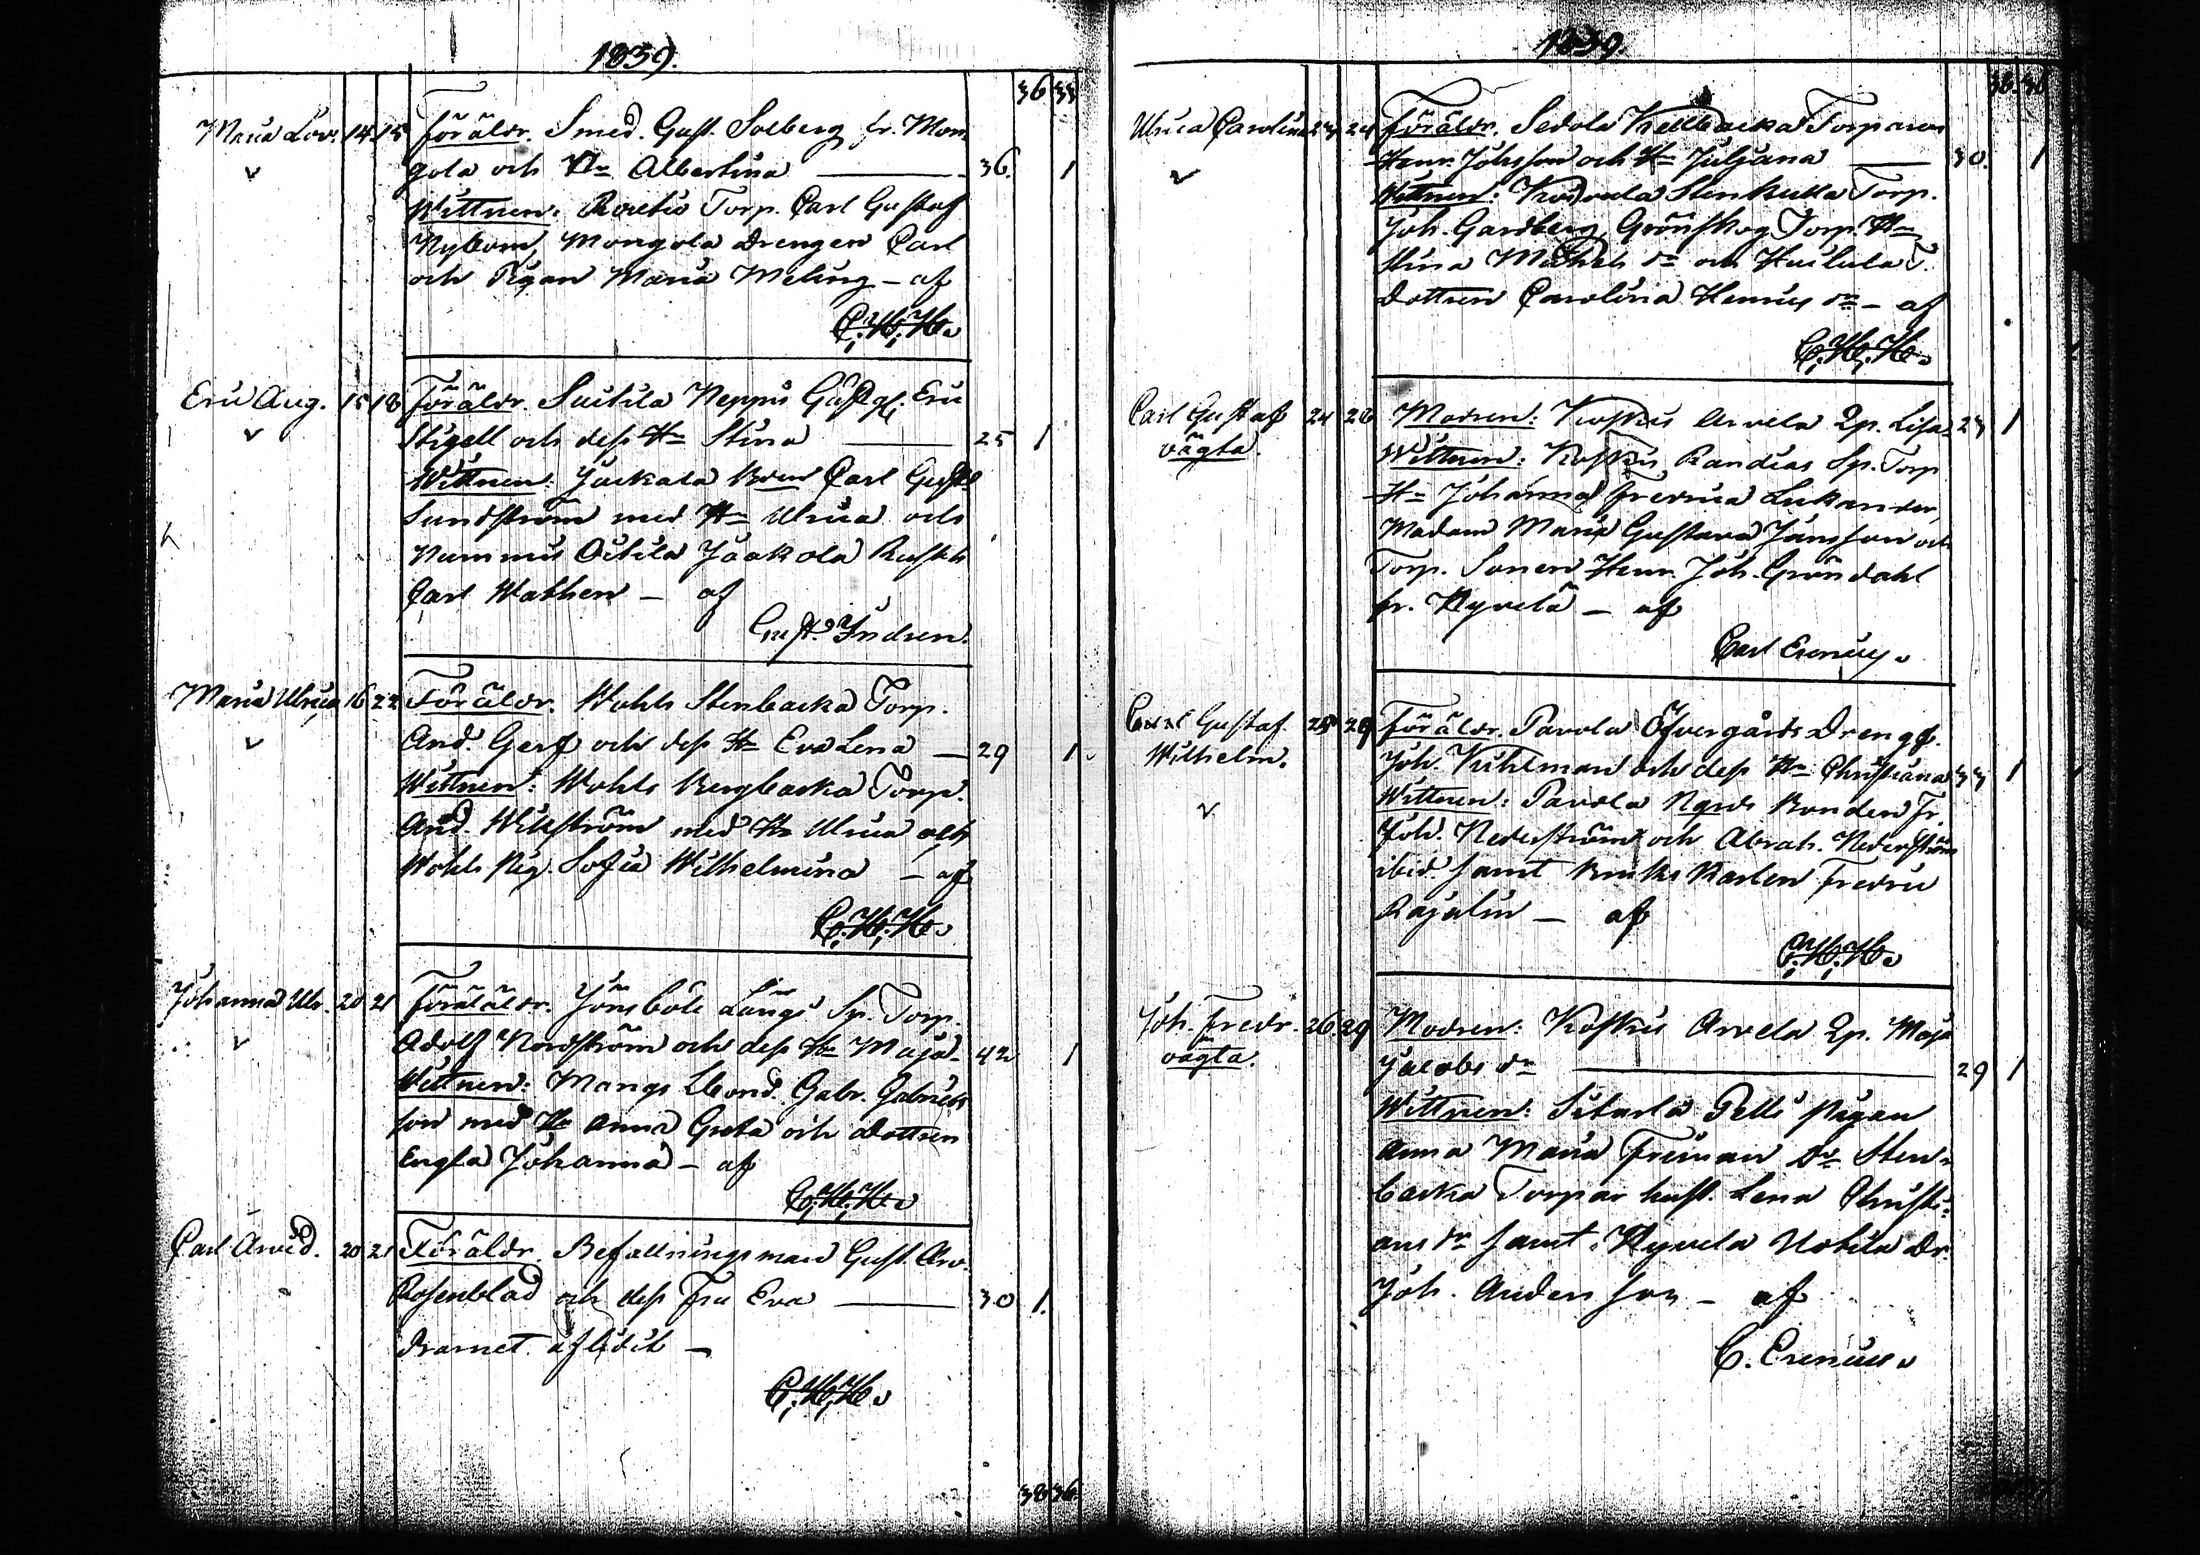 1839.
36 33
Maria Lov. 14 15 Föräldr. Smed. Gust. Solberg fr. Mon
gola och H:u Albertina — 36. 1
Wittnen: Torp. Carl Gustaf
Nybom, Mongola Drengen Carl
och Pigan Maria Meling — af
C. H. H.
Eric Aug. 15 18 Föräldr. Suitila Neppis Eric
Stigell och dess H:u Stina — 25 1
Wittnen: Jackala Carl Gust.
Sundström med H:u Ulrica och
Nummis Oitila Jaakola
Carl Wathen — af
Gust. Indren.
Maria Ulrica 16 22 Föräldr. Wohls Stenbacka Torp.
And. och dess H:u Eva Lena — 29 1
Wittnen: Wohls Bergbacka Torp.
And. Wikström med H:u Ulrica och
Wohls Pig. Sofia Wilhelmina — af
C. H. H.
Johanna Ulr. 20 21 Föräldr. Jönsböle Längs Sp. Torp.
Adolf Nordström och dess H:u Maja 42 1
Wittnen: Mangs Gabr. Gabriels
son med H:u Anna Greta och Dottren
Engla Johanna — af
C. H. H.
Carl Arvid. 20 21 Föräldr. Befallningsman Gust. Arv.
Rosenblad och dess Fru Eva — 30 1.
Barnet aflidit —
C. H. H.
38 36
1839.
38 36
Ulrica Carolina 23 24 Föräldr. Sedola Kellbacka Torparen
Henr. Johsson och H:u Juljana — 30. 1
Wittnen: Stenkulla Torp.
Joh. Gardberg, Grönskog Torp. H:u
Stina Michels d:r och T.
Dottren Carolina Henrics d:r — af
C. H. H.
Carl Gustaf 24 28 Modren: Koskis Arvela Qp. Lisa 27 1
oägta.
Wittnen: Koskis Randias Sp. Torp
H:u Johanna Fredrica Lukander,
Madam Maria Gustava Jansson och
Torp. Sonen Henr. Joh. Gröndahl
fr. Kyrelä — af
Carl Erenius
Carl Gustaf 25 29 Föräldr. Pavola Öfvergårds Dreng
Wilhelm.
Joh. Kuhlman och dess H:u Christiana 33 1
Wittnen: Pavola Bonden Fr.
Joh. Nederström och Abrah. Nederström
ibid. samt Bruks Karlen Fredric
Rajalin — af
C. H. H.
Joh. Fredr. 26. 29 Modren: Koskis Arvela Qp. Maja
oägta.
Jacobs d:r — 29 1
Wittnen: Sitarla Pelli Pigan
Anna Maria Friman D:o Sten-
backa Torpar hust. Lena Christi-
ans d:r samt Kyrela Uotila Dr.
Joh. Andersson — af
C. Erenius